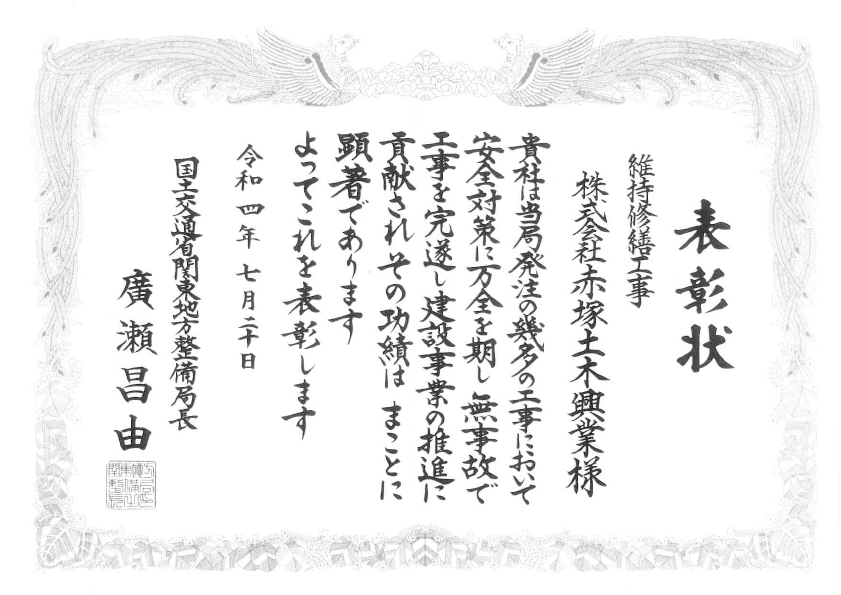 表彰状
維持修繕工事
株式会社赤塚土木興業様
貴社は当局発注の幾多の工事において
安全対策に万全を期し無事故で
工事を完遂し建設事業の推進に
貢献されその功績はまことに
顕著であります
よってこれを表彰します
令和四年七月二十日
国土交通省関東地方整備局長
廣瀬昌由